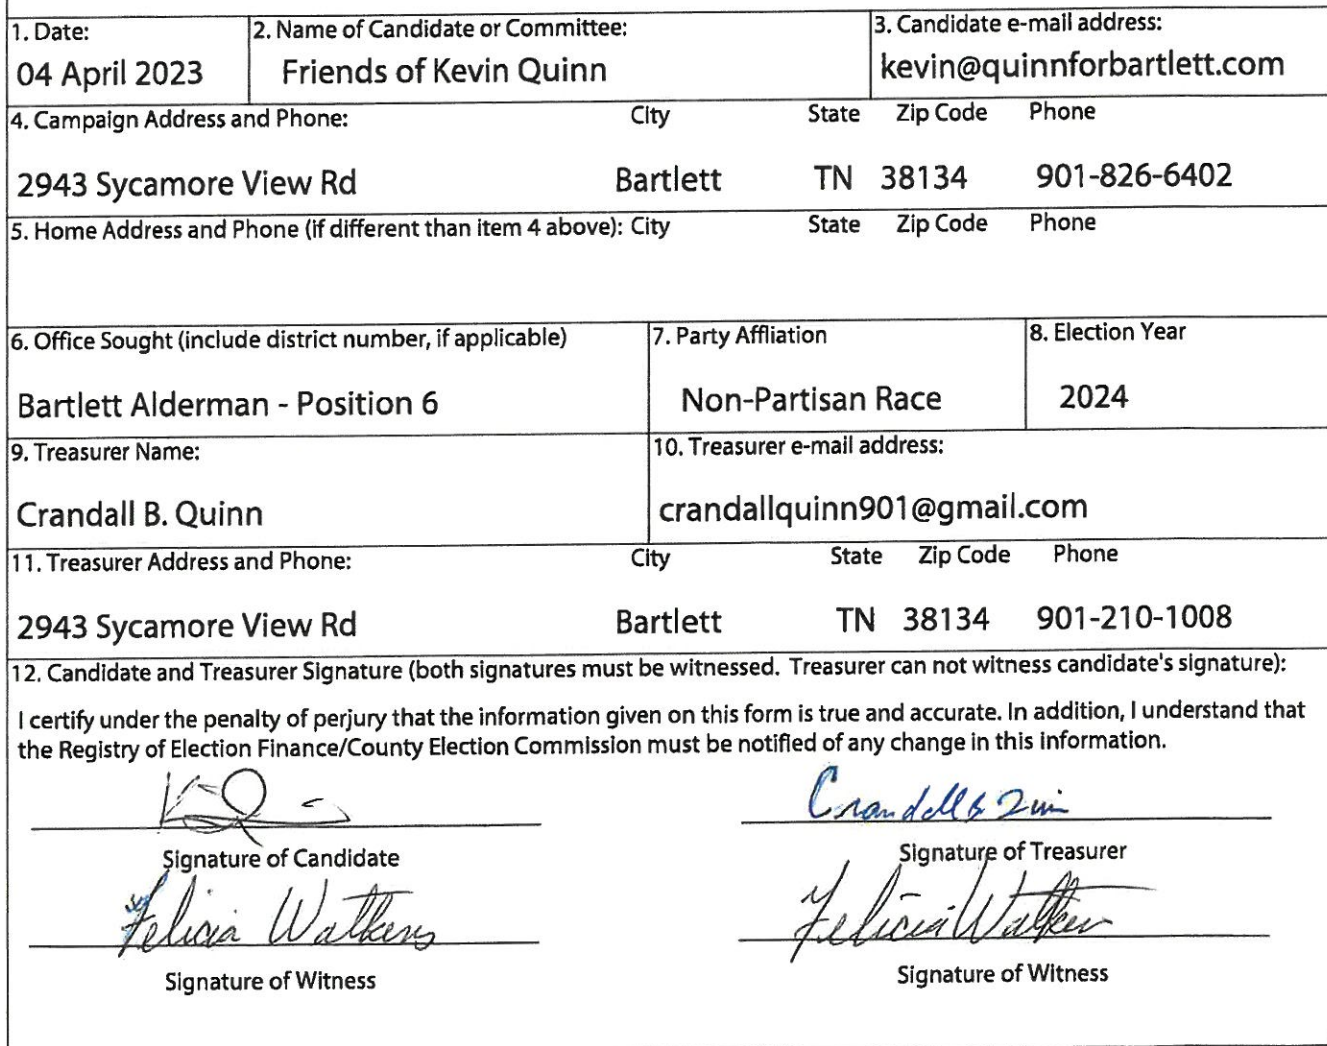 1. Date:
04 April 2023
2. Name of Candidate or Committee:
Friends of Kevin Quinn
3. Candidate e-mail address:
kevin@quinnforbartlett.com
4. Campaign Address and Phone: City State Zip Code Phone
2943 Sycamore View Rd Bartlett TN 38134 901-826-6402
5. Home Address and Phone (if different than item 4 above): City State Zip Code Phone
6. Office Sought (include district number, if applicable)
Bartlett Alderman - Position 6
7. Party Affliation
Non-Partisan Race
8. Election Year
2024
9. Treasurer Name:
Crandall B. Quinn
10. Treasurer e-mail address:
crandallquinn901@gmail.com
11. Treasurer Address and Phone: City State Zip Code Phone
2943 Sycamore View Rd Bartlett TN 38134 901-210-1008
12. Candidate and Treasurer Signature (both signatures must be witnessed. Treasurer can not witness candidate's signature):
I certify under the penalty of perjury that the information given on this form is true and accurate. In addition, I understand that
the Registry of Election Finance/County Election Commission must be notified of any change in this information.
Crandall B Quinn
Signature of Candidate
Signature of Treasurer
Felicia Watkins
Felicia Watkins
Signature of Witness
Signature of Witness